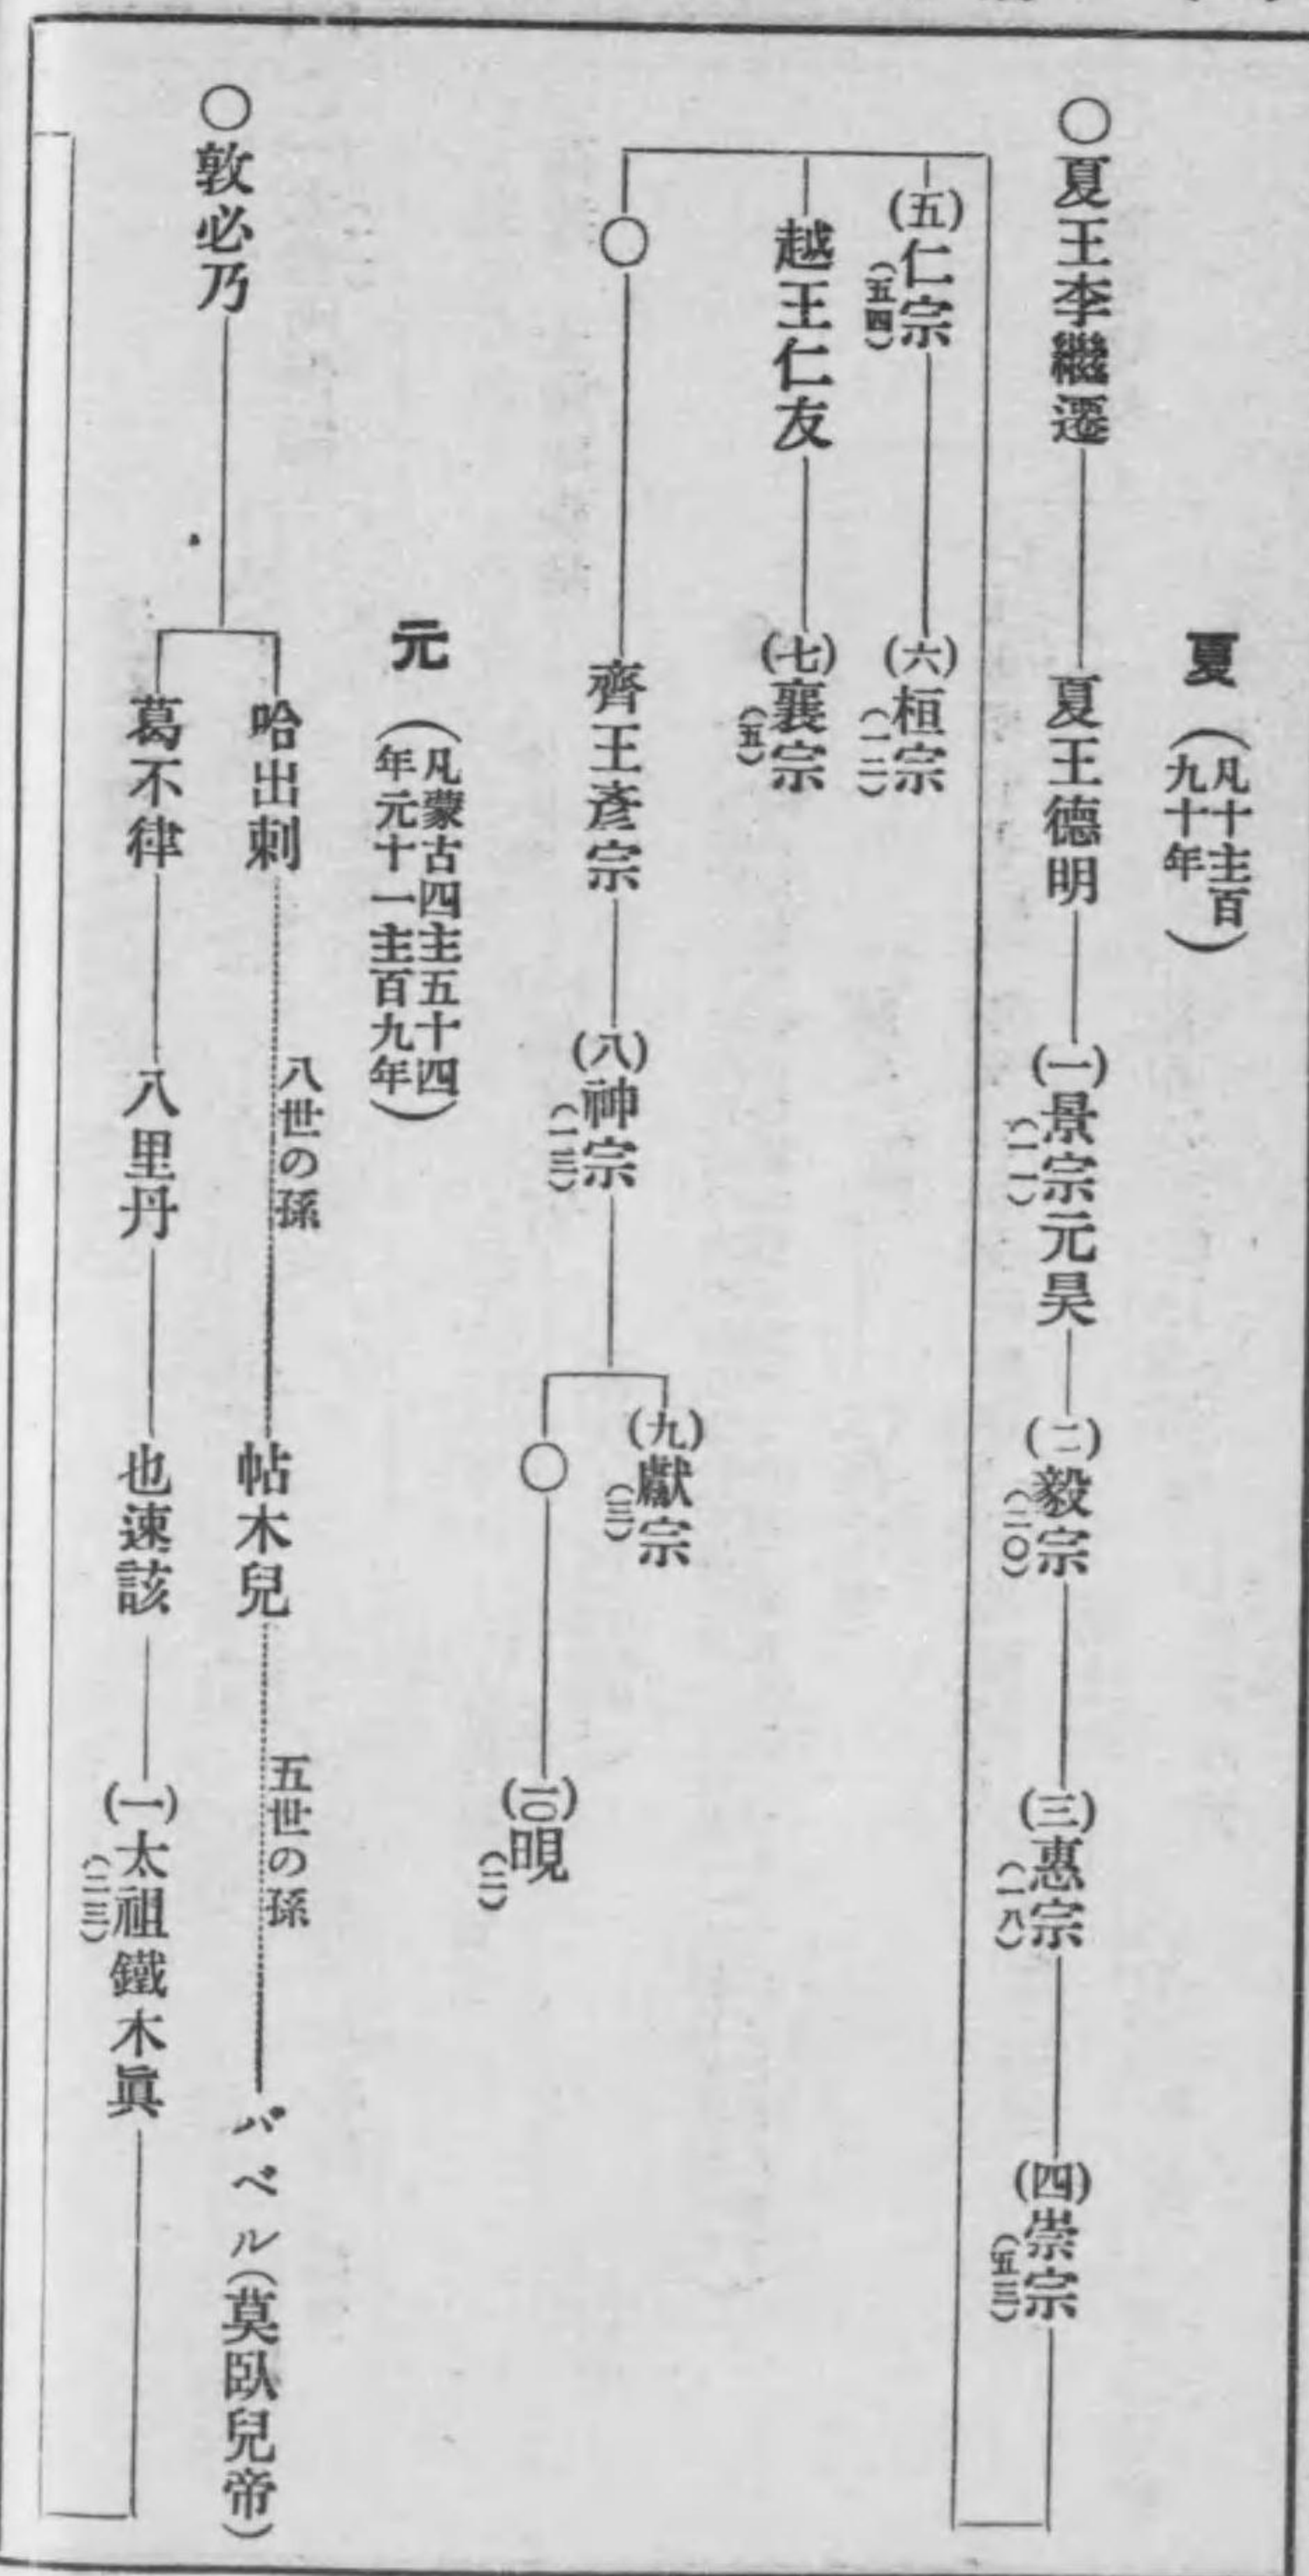 夏(凡十主百九十年)
○夏王李繼遷
夏王德明
(一)景宗元昊(一一)
(二)毅宗(二〇)
(三)惠宗(一八)
(四)崇宗(五三)
(五)仁宗(五四)
(六)桓宗(一二)
越王仁友
(七)襄宗(五)
○
齊王彥宗
(八)神宗(一三)
(九)獻宗(三)
○
(一〇)晛(二)
元(凡蒙古四主五十四年元十一主百九年)
○敦必乃
哈出刺
八世の孫
帖木兒
五世の孫
バベル(莫臥兒帝)
葛不律
八里丹
也速該
(一)太祖鐵木眞(二三)